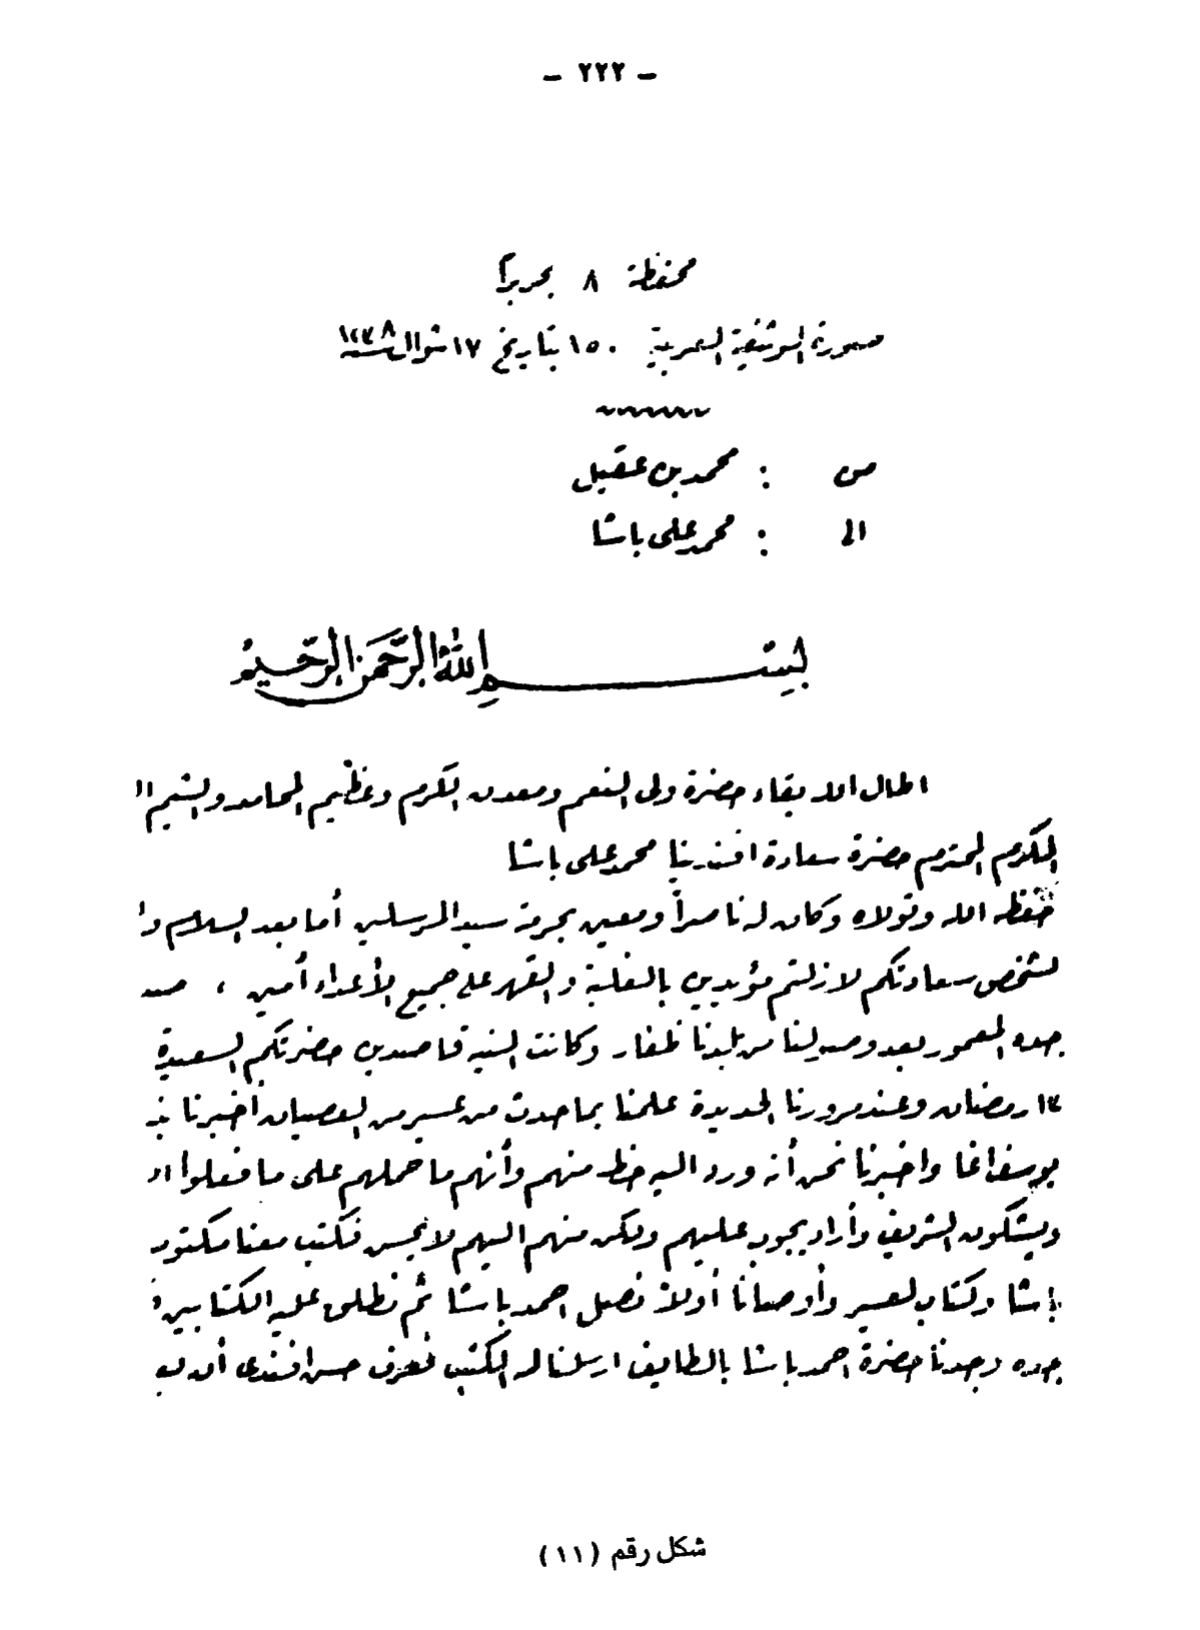 - ٢٢٢ -
محفظة ٨ بحربرا
صورة الوثيقة العربية ١٥٠ بتاريخ ١٧ شوال سنة ١٢٣٨
من : محمد بن عقيل
الى : محمد على باشا
بسم الله الرحمن الرحيم
اطال الله بقاء حضرة ولى النعم ومعدن الكرم وعظيم المحامد والشيم ال
المكرم المحترم حضرة سعادة افندينا محمد على باشا
حفظه الله وتولاه وكان له ناصراً ومعين بحرمة سيد المرسلين أما بعد السلام وا
لشخص سعادتكم لازلتم مؤيدين بالغلبة والقهر على جميع الأعداء أمين ، صد
جده المعمور بعد وصولنا من بلدنا ظفار وكانت النية قاصدين حضرتكم السعيدة
١٢ رمضان وعند مرورنا الحديدة علمنا بما حدث من عسير من العصيان اخبرنا بذ
يوسف اغا واخبرنا نحن أنه ورد اليه خط منهم وأنهم ما حملهم على ما فعلوا ال
ويشكون الشريف وأراد يجوب عليهم ولكن منهم اليهم لا يحسن فكتب معنا مكتوب
باشا وكتاب لعسير وأوصانا أولاً نصل احمد باشا ثم نطلق عليه الكتابين و
جده وجدنا حضرة احمد باشا بالطايف ارسلنا له الكتب فعرف حسن افندى أن
شكل رقم (١١)